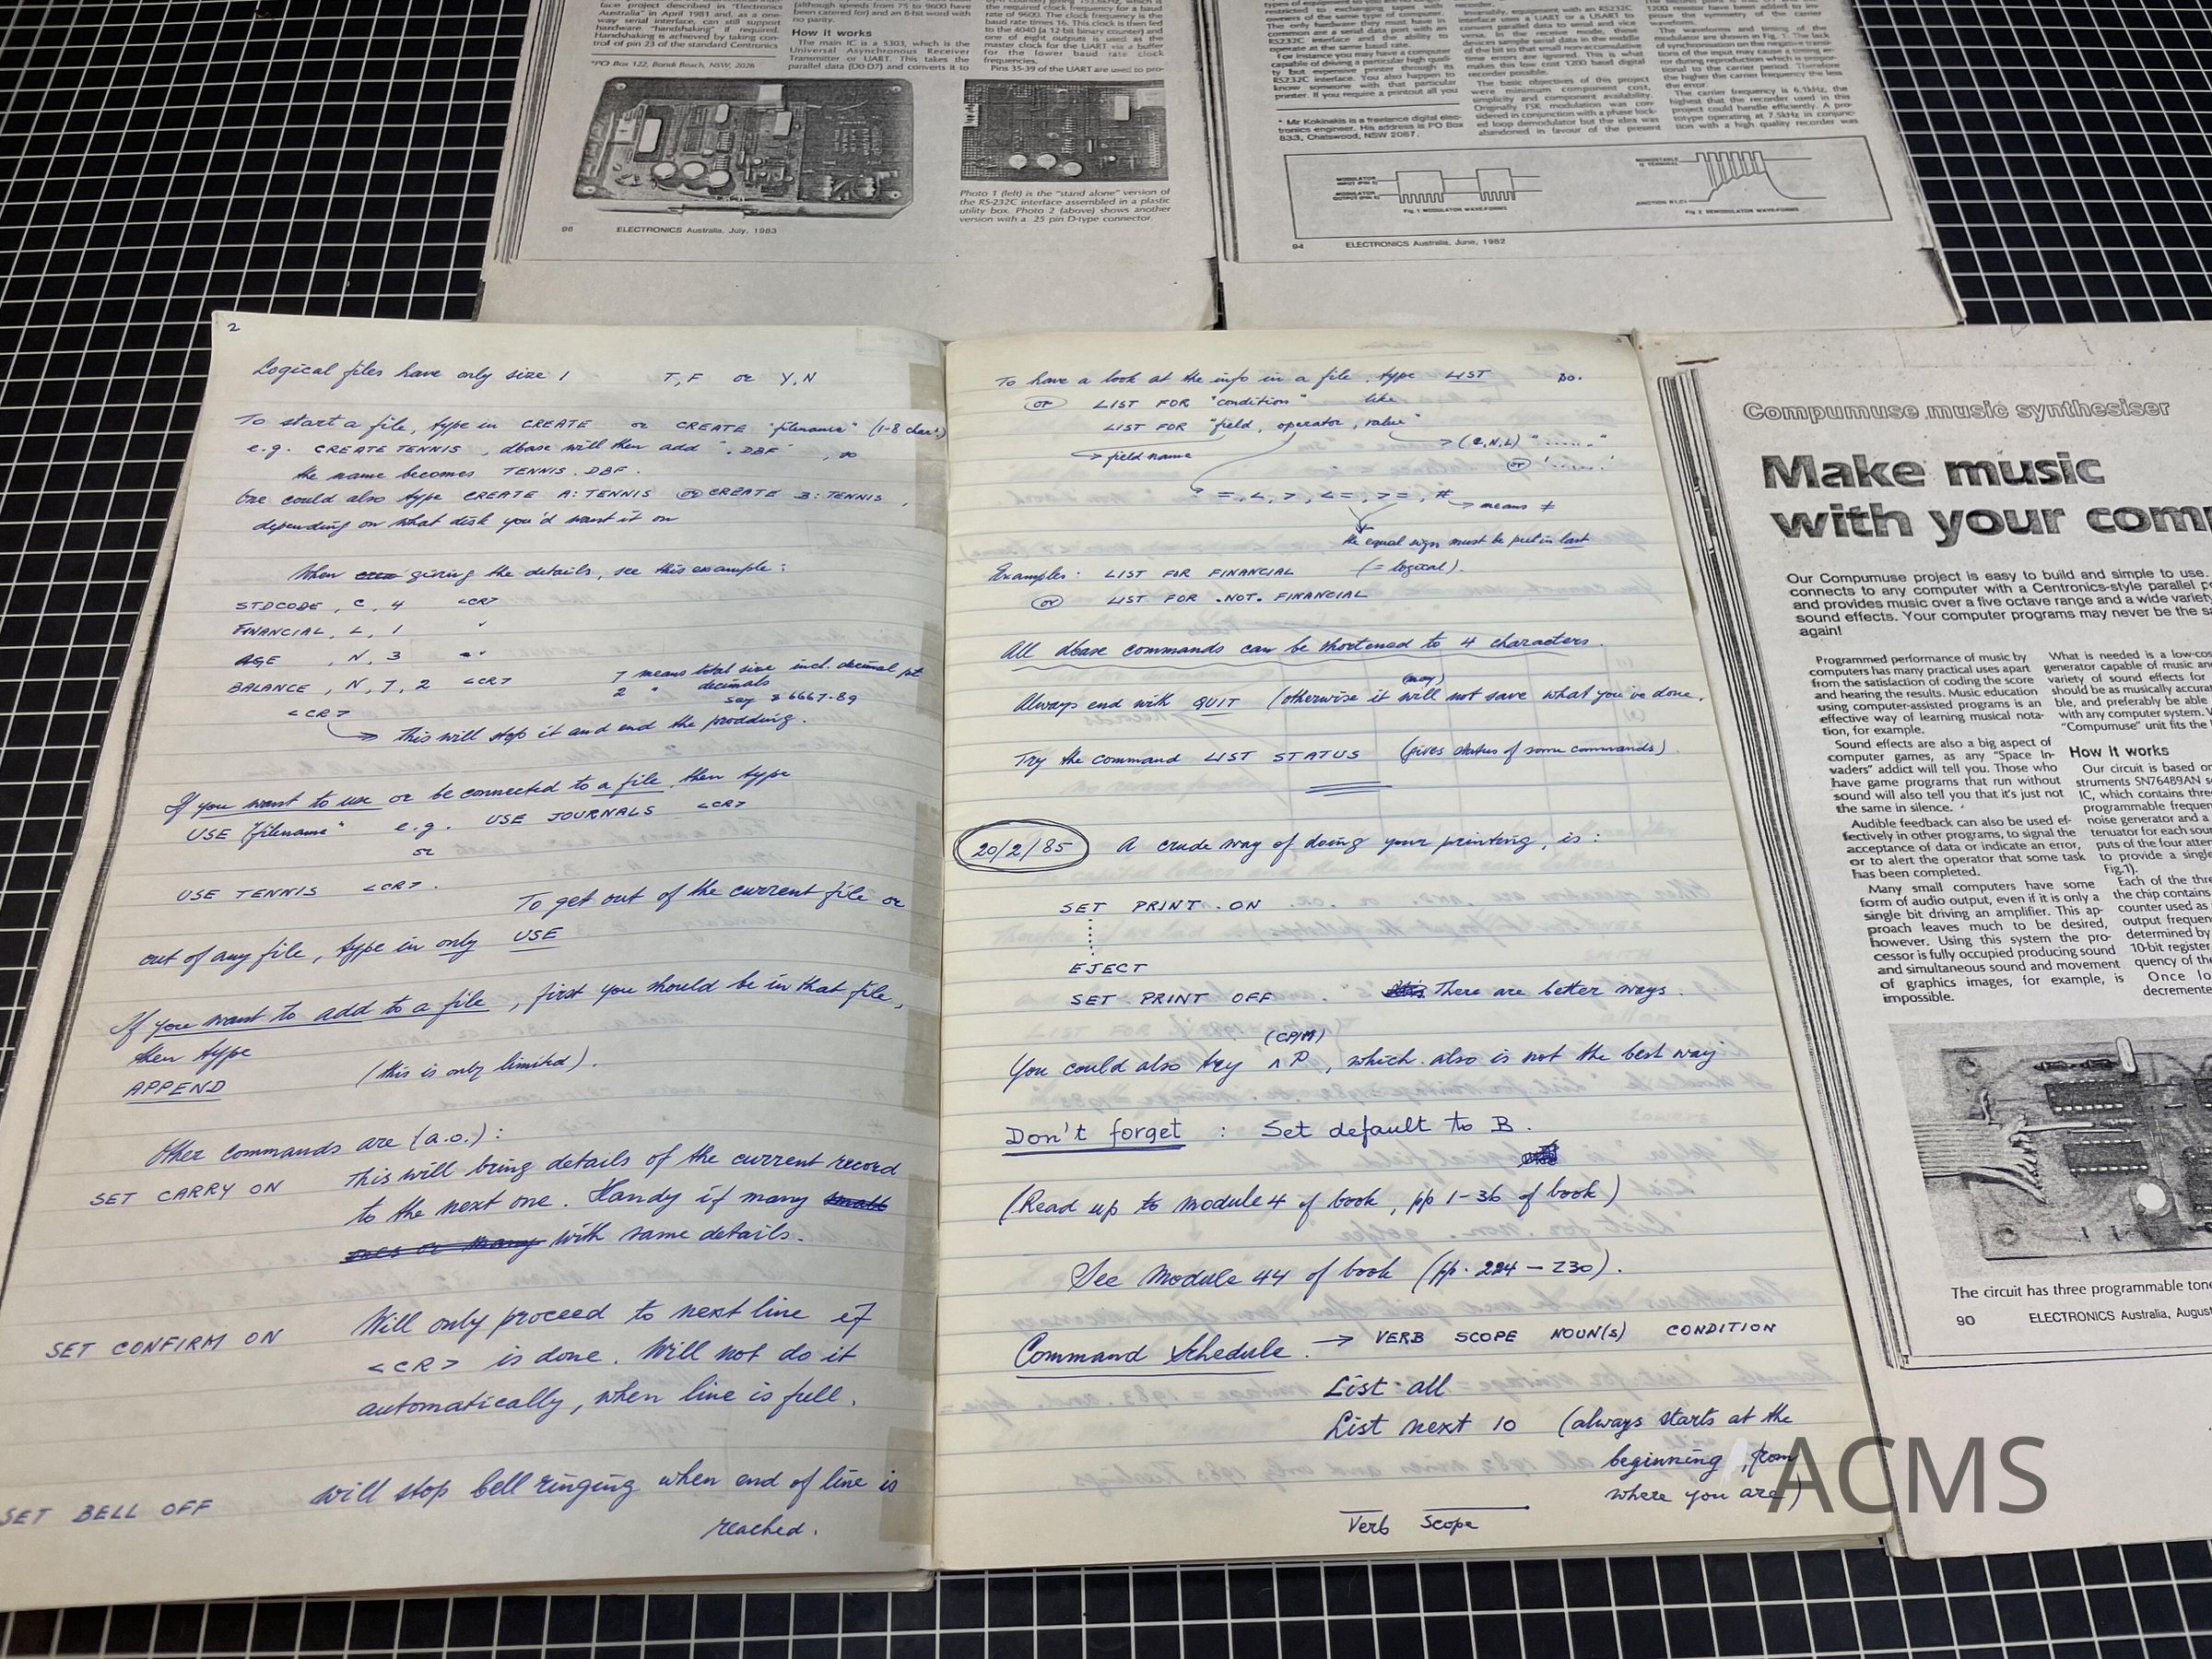 face project described in "Electronics
Australia" in April 1981 and, as a one-
way serial interface, can still support
hardware "handshaking" if required.
Handshaking is achieved by taking con-
trol of pin 23 of the standard Centronics
*PO Box 122, Bondi Beach, NSW, 2026
(although speeds from 75 to 9600 have
been catered for) and an 8-bit word with
no parity.
How it works
The main IC is a 5303, which is the
Universal Asynchronous Receiver
Transmitter or UART. This takes the
parallel data (D0-D7) and converts it to
the required clock frequency for a baud
rate of 9600. The clock frequency is the
baud rate times 16. This clock is then fed
to the 4040 (a 12-bit binary counter) and
one of eight outputs is used as the
master clock for the UART via a buffer
for the lower baud rate clock
frequencies.
Pins 35-39 of the UART are used to pro-
Photo 1 (left) is the "stand alone" version of
the RS-232C interface assembled in a plastic
utility box. Photo 2 (above) shows another
version with a 25 pin D-type connector.
96 ELECTRONICS Australia, July, 1983
restricted to exchanging tapes with
owners of the same type of computer.
The only hardware they must have in
common are a serial data port with an
RS232C interface and the ability to
operate at the same baud rate.
For instance you may have a computer
capable of driving a particular high quali-
ty but expensive printer through its
RS232C interface. You also happen to
know someone with that particular
printer. If you require a printout all you
* Mr Kokinakis is a freelance digital elec-
tronics engineer. His address is PO Box
833, Chatswood, NSW 2067.
interface uses a UART or a USART to
convert parallel data to serial and vice
versa. In the receive mode, these
devices sample serial data in the middle
of the bit so that small non-accumulative
time errors are ignored. This is what
makes this low cost 1200 baud digital
recorder possible.
The basic objectives of this project
were minimum component cost,
simplicity and component availability.
Originally FSK modulation was con-
sidered in conjunction with a phase lock-
ed loop demodulator but the idea was
abandoned in favour of the present
prove the symmetry of the carrier
waveform.
The waveforms and timing of the
modulator are shown in Fig. 1. The lack
of synchronisation on the negative transi-
tions of the input may cause a timing er-
ror during reproduction which is propor-
tional to the carrier period. Therefore
the higher the carrier frequency the less
the error.
The carrier frequency is 6.1kHz, the
highest that the recorder used in this
project could handle efficiently. A pro-
totype operating at 7.5kHz in conjunc-
tion with a high quality recorder was
MODULATOR
INPUT (PIN 2)
MODULATOR
OUTPUT (PIN 3)
Fig. 1 MODULATOR WAVEFORMS
MONOSTABLE
Fig. 2 DEMODULATOR WAVEFORMS
94 ELECTRONICS Australia, June, 1982
2
Logical files have only size 1 T,F or Y,N
To start a file, type in CREATE or CREATE "filename" (1-8 char.)
e.g. CREATE TENNIS, dbase will then add ".DBF", so
the name becomes TENNIS.DBF.
One could also type CREATE A:TENNIS or CREATE B:TENNIS,
depending on what disk you'd want it on
When giving the details, see this example:
STDCODE, C, 4 <CR>
FINANCIAL, L, 1 "
AGE , N, 3 "
BALANCE, N, 7, 2 <CR> 7 means total size incl. decimal pt
2 " decimals
say $6667.89
<CR>
this will stop it and end the prodding.
If you want to use or be connected to a file, then type
USE "filename" e.g. USE JOURNALS <CR>
or
USE TENNIS <CR>.
To get out of the current file or
out of any file, type in only USE
If you want to add to a file, first you should be in that file,
then type
APPEND (this is only limited).
Other commands are (a.o.):
SET CARRY ON This will bring details of the current record
to the next one. Handy if many small
ones or many with same details.
SET CONFIRM ON Will only proceed to next line if
<CR> is done. Will not do it
automatically, when line is full.
SET BELL OFF will stop bell ringing when end of line is
reached.
To have a look at the info in a file, type LIST DO.
or LIST FOR "condition" like
LIST FOR "field, operator, value"
field name (C,N,L) "......"
or '......'
=, <, >, <=, >=, #
means ≠
the equal sign must be put in last
Examples: LIST FOR FINANCIAL (= logical).
or LIST FOR .NOT. FINANCIAL
All dbase commands can be shortened to 4 characters.
Always end with QUIT (otherwise it will (may) not save what you've done.
Try the command LIST STATUS (gives status of some commands).
20/2/85 A crude way of doing your printing, is:
SET PRINT ON
EJECT
SET PRINT OFF There are better ways.
(CP/M)
You could also try ^P, which also is not the best way
Don't forget : Set default to B.
(Read up to module 4 of book, pp 1-36 of book)
See Module 44 of book (pp. 224-230).
Command Schedule. → VERB SCOPE NOUN(S) CONDITION
List all
List next 10 (always starts at the
beginning, from
where you are)
Verb Scope
Compumuse music synthesiser
Make music
with your comp
Our Compumuse project is easy to build and simple to use.
connects to any computer with a Centronics-style parallel p
and provides music over a five octave range and a wide variety
sound effects. Your computer programs may never be the sa
again!
Programmed performance of music by
computers has many practical uses apart
from the satisfaction of coding the score
and hearing the results. Music education
using computer-assisted programs is an
effective way of learning musical nota-
tion, for example.
Sound effects are also a big aspect of
computer games, as any "Space In-
vaders" addict will tell you. Those who
have game programs that run without
sound will also tell you that it's just not
the same in silence.
Audible feedback can also be used ef-
fectively in other programs, to signal the
acceptance of data or indicate an error,
or to alert the operator that some task
has been completed.
Many small computers have some
form of audio output, even if it is only a
single bit driving an amplifier. This ap-
proach leaves much to be desired,
however. Using this system the pro-
cessor is fully occupied producing sound
and simultaneous sound and movement
of graphics images, for example, is
impossible.
What is needed is a low-cos
generator capable of music an
variety of sound effects for
should be as musically accurat
ble, and preferably be able
with any computer system. W
"Compumuse" unit fits the
How it works
Our circuit is based on
struments SN76489AN s
IC, which contains three
programmable frequen
noise generator and a
tenuator for each sour
puts of the four atten
to provide a single
Fig.1).
Each of the thre
the chip contains
counter used as
output frequen
determined by
10-bit register
quency of the
Once lo
decremente
The circuit has three programmable tone
90 ELECTRONICS Australia, August
ACMS